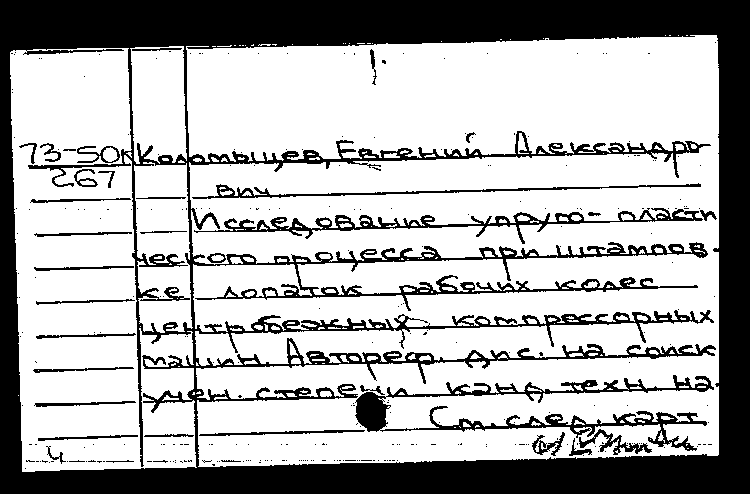 1.
73-50к Коломыцев, Евгений Александро-
267 вич
Исследование упруго-пласти
ческого процесса при штампов-
ке лопаток рабочих колес
центробежных компрессорных
машин. Автореф. дис. на соиск
учен. степени канд. техн. на-
См. след. карт
4